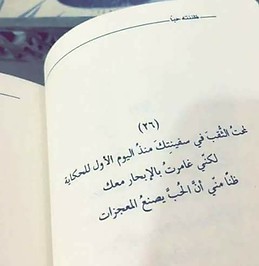 ظننته حبا
(٢٦)
لمحتُ الثقبَ في سفينتِكَ منذُ اليوم الأول للحكاية
لكنّي غامرتُ بالإبحار معك
ظنًا منّي أنَّ الحُبَّ يصنعُ المعجزات